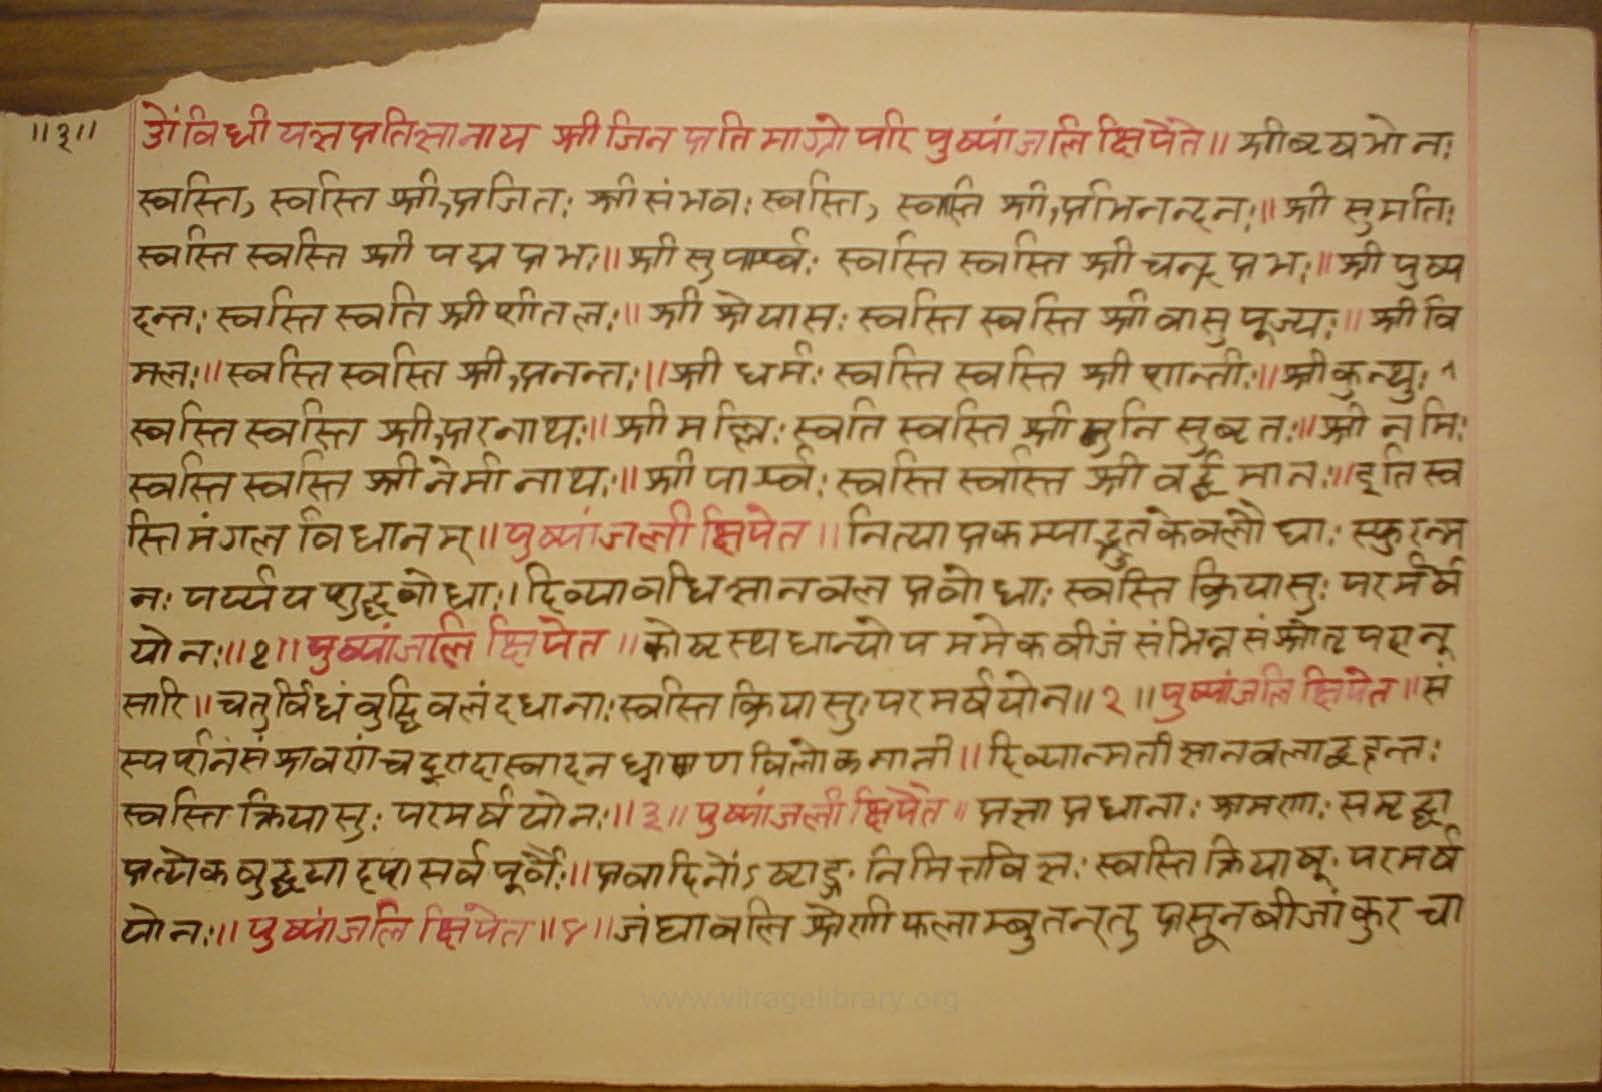 ॥३॥ ओं विधी यज्ञ प्रतिज्ञानाय श्री जिन प्रतिमाग्रो परि पुष्पांजलि क्षिपेते॥ श्रीवृषभो नः
स्वस्ति, स्वस्ति श्री अजितः श्री संभवः स्वस्ति, स्वस्ति श्री अभिनन्दनः॥ श्री सुमतिः
स्वस्ति स्वस्ति श्री पद्म प्रभः॥ श्री सुपार्श्वः स्वस्ति स्वस्ति श्री चन्द्र प्रभः॥ श्री पुष्प
दन्तः स्वस्ति स्वति श्री शीतलः॥ श्री श्रेयासः स्वस्ति स्वस्ति श्री वासुपूज्यः॥ श्री वि
मलः॥ स्वस्ति स्वस्ति श्री अनन्तः॥ श्री धर्मः स्वस्ति स्वस्ति श्री शान्तीः॥ श्री कुन्थुः
स्वस्ति स्वस्ति श्री अरनाथः॥ श्री मल्लिः स्वति स्वस्ति श्री मुनि सुव्रतः॥ श्री नमिः
स्वस्ति स्वस्ति श्री नेमी नाथः॥ श्री पार्श्वः स्वस्ति स्वस्ति श्री वर्द्धमानः॥ इति स्व
स्ति मंगल विधानम्॥ पुष्पांजली क्षिपेत॥ नित्याप्रकम्पाद्भुत केवलौ घाः स्फुरन्म
नः पर्य्यय शुद्ध बोधाः। दिव्यावधि ज्ञान वल प्रवोधाः स्वस्ति क्रियासुः परमर्ष
योनः॥१॥ पुष्पांजलि क्षिपेत॥ कोष्टस्थ धान्योप ममेक वीजं संभिन्न संश्रोतृ पदानू
सारि॥ चतुर्विधं वुद्धि वलं दधानाः स्वस्ति क्रियासुः परमर्षयोन॥२॥ पुष्पांजलि क्षिपेत॥ सं
स्पर्शनं संश्रवणं च दूरादास्वादन घ्राण विलोकमानी॥ दिव्यान्मती ज्ञानवलाद्वहन्तः
स्वस्ति क्रियासुः परमर्षयोनः॥३॥ पुष्पांजली क्षिपेत॥ प्रज्ञा प्रधानाः श्रमणाः समृद्धा
प्रत्येक बुद्धया दृशा सर्व पूर्वैः॥ प्रवादिनोंऽष्टाङ्ग निमित्त विज्ञः स्वस्ति क्रियाषूः परमर्ष
योनः॥ पुष्पांजलि क्षिपेत॥४॥ जंघावलि श्रेणी फलाम्बु तन्तु प्रसून बीजांकुर चा
www.vitragelibrary.org